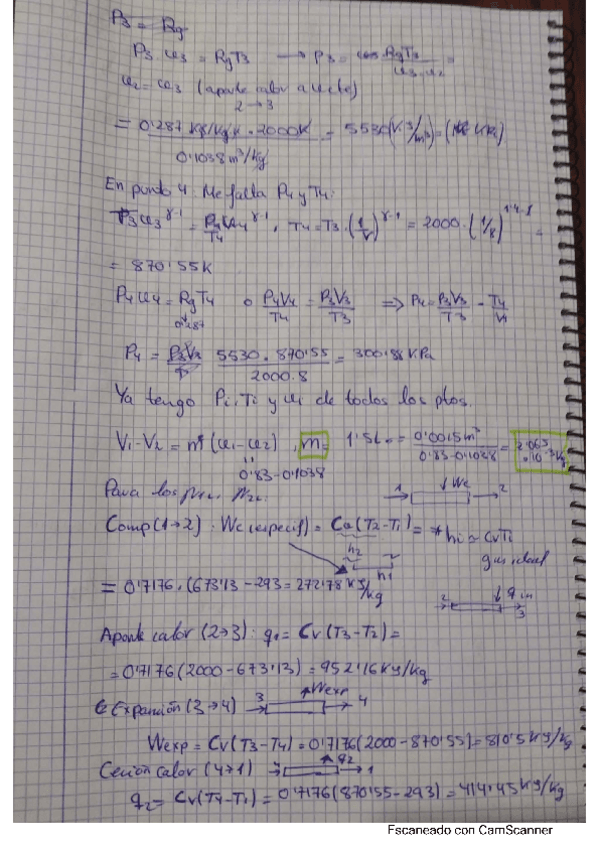 P3 = Rg
P3 u3 = RgT3 → P3 = RgT3 / u3=u2 =
u2 = u3 (aporte calor a v cte)
2→3
= 0'287 KJ/KgK · 2000K / 0'1038 m³/Kg = 5530 (KJ/m³) = (KPa)
En punto 4: Me falta P4 y T4:
T3 u3^γ-1 = T4 u4^γ-1, T4 = T3 · (1/r)^γ-1 = 2000 · (1/8)^1'4-1 =
= 870'55K
P4 u4 = RgT4 o P4V4/T4 = P3V3/T3 ⇒ P4 = P3V3/T3 · T4/V4
0'287
P4 = P3V3 5530 · 870'55 / 2000·8 = 300'88 KPa
Ya tengo Pi, Ti y ui de todos los ptos.
V1-V2 = m (u1-u2), m = 1'5L = 0'0015m³ / 0'83-0'1038 = 2'065 ·10⁻³ Kg
0'83-0'1038
Para los
1 → Wc → 2
Comp (1→2): Wc (específ) = Cv (T2-T1) = * hi ≈ CvTi
h2 h1 gas ideal
= 0'7176 · (673'13 - 293 = 272'78 KJ/kg
2 → q in 3
Aporte calor (2→3): q1 = Cv (T3-T2) =
= 0'7176 (2000 - 673'13) = 952'16 KJ/kg
Expansión (3→4) 3 → Wexp → 4
Wexp = Cv (T3-T4) = 0'7176 (2000 - 870'55) = 810'5 KJ/Kg
Cesión calor (4→1) q2 → 1
q2 = Cv (T4-T1) = 0'7176 (870'55 - 293) = 414'45 KJ/Kg
Escaneado con CamScanner